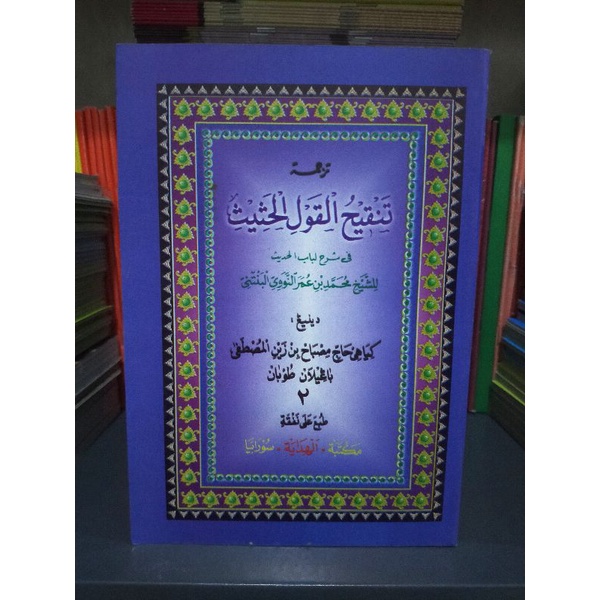 ترجمة
تَنْقِيْحُ الْقَوْلِ الْحَثِيْثِ
فى شرح لباب الحديث
للشَّيْخِ مُحَمَّدِ بْنِ عُمَرَ النَّوَوِى الْبَنْتَنِى
دينيڠ :
كياهى حَاج مِصْبَاح بِنْ زَيْنِ الْمُصْطَفَى
باڠيلان طُوبَان
٢
طُبِعَ عَلَى نَفَقَةِ
مَكتبَة - الهِدَايَة - سُورَابَايَا